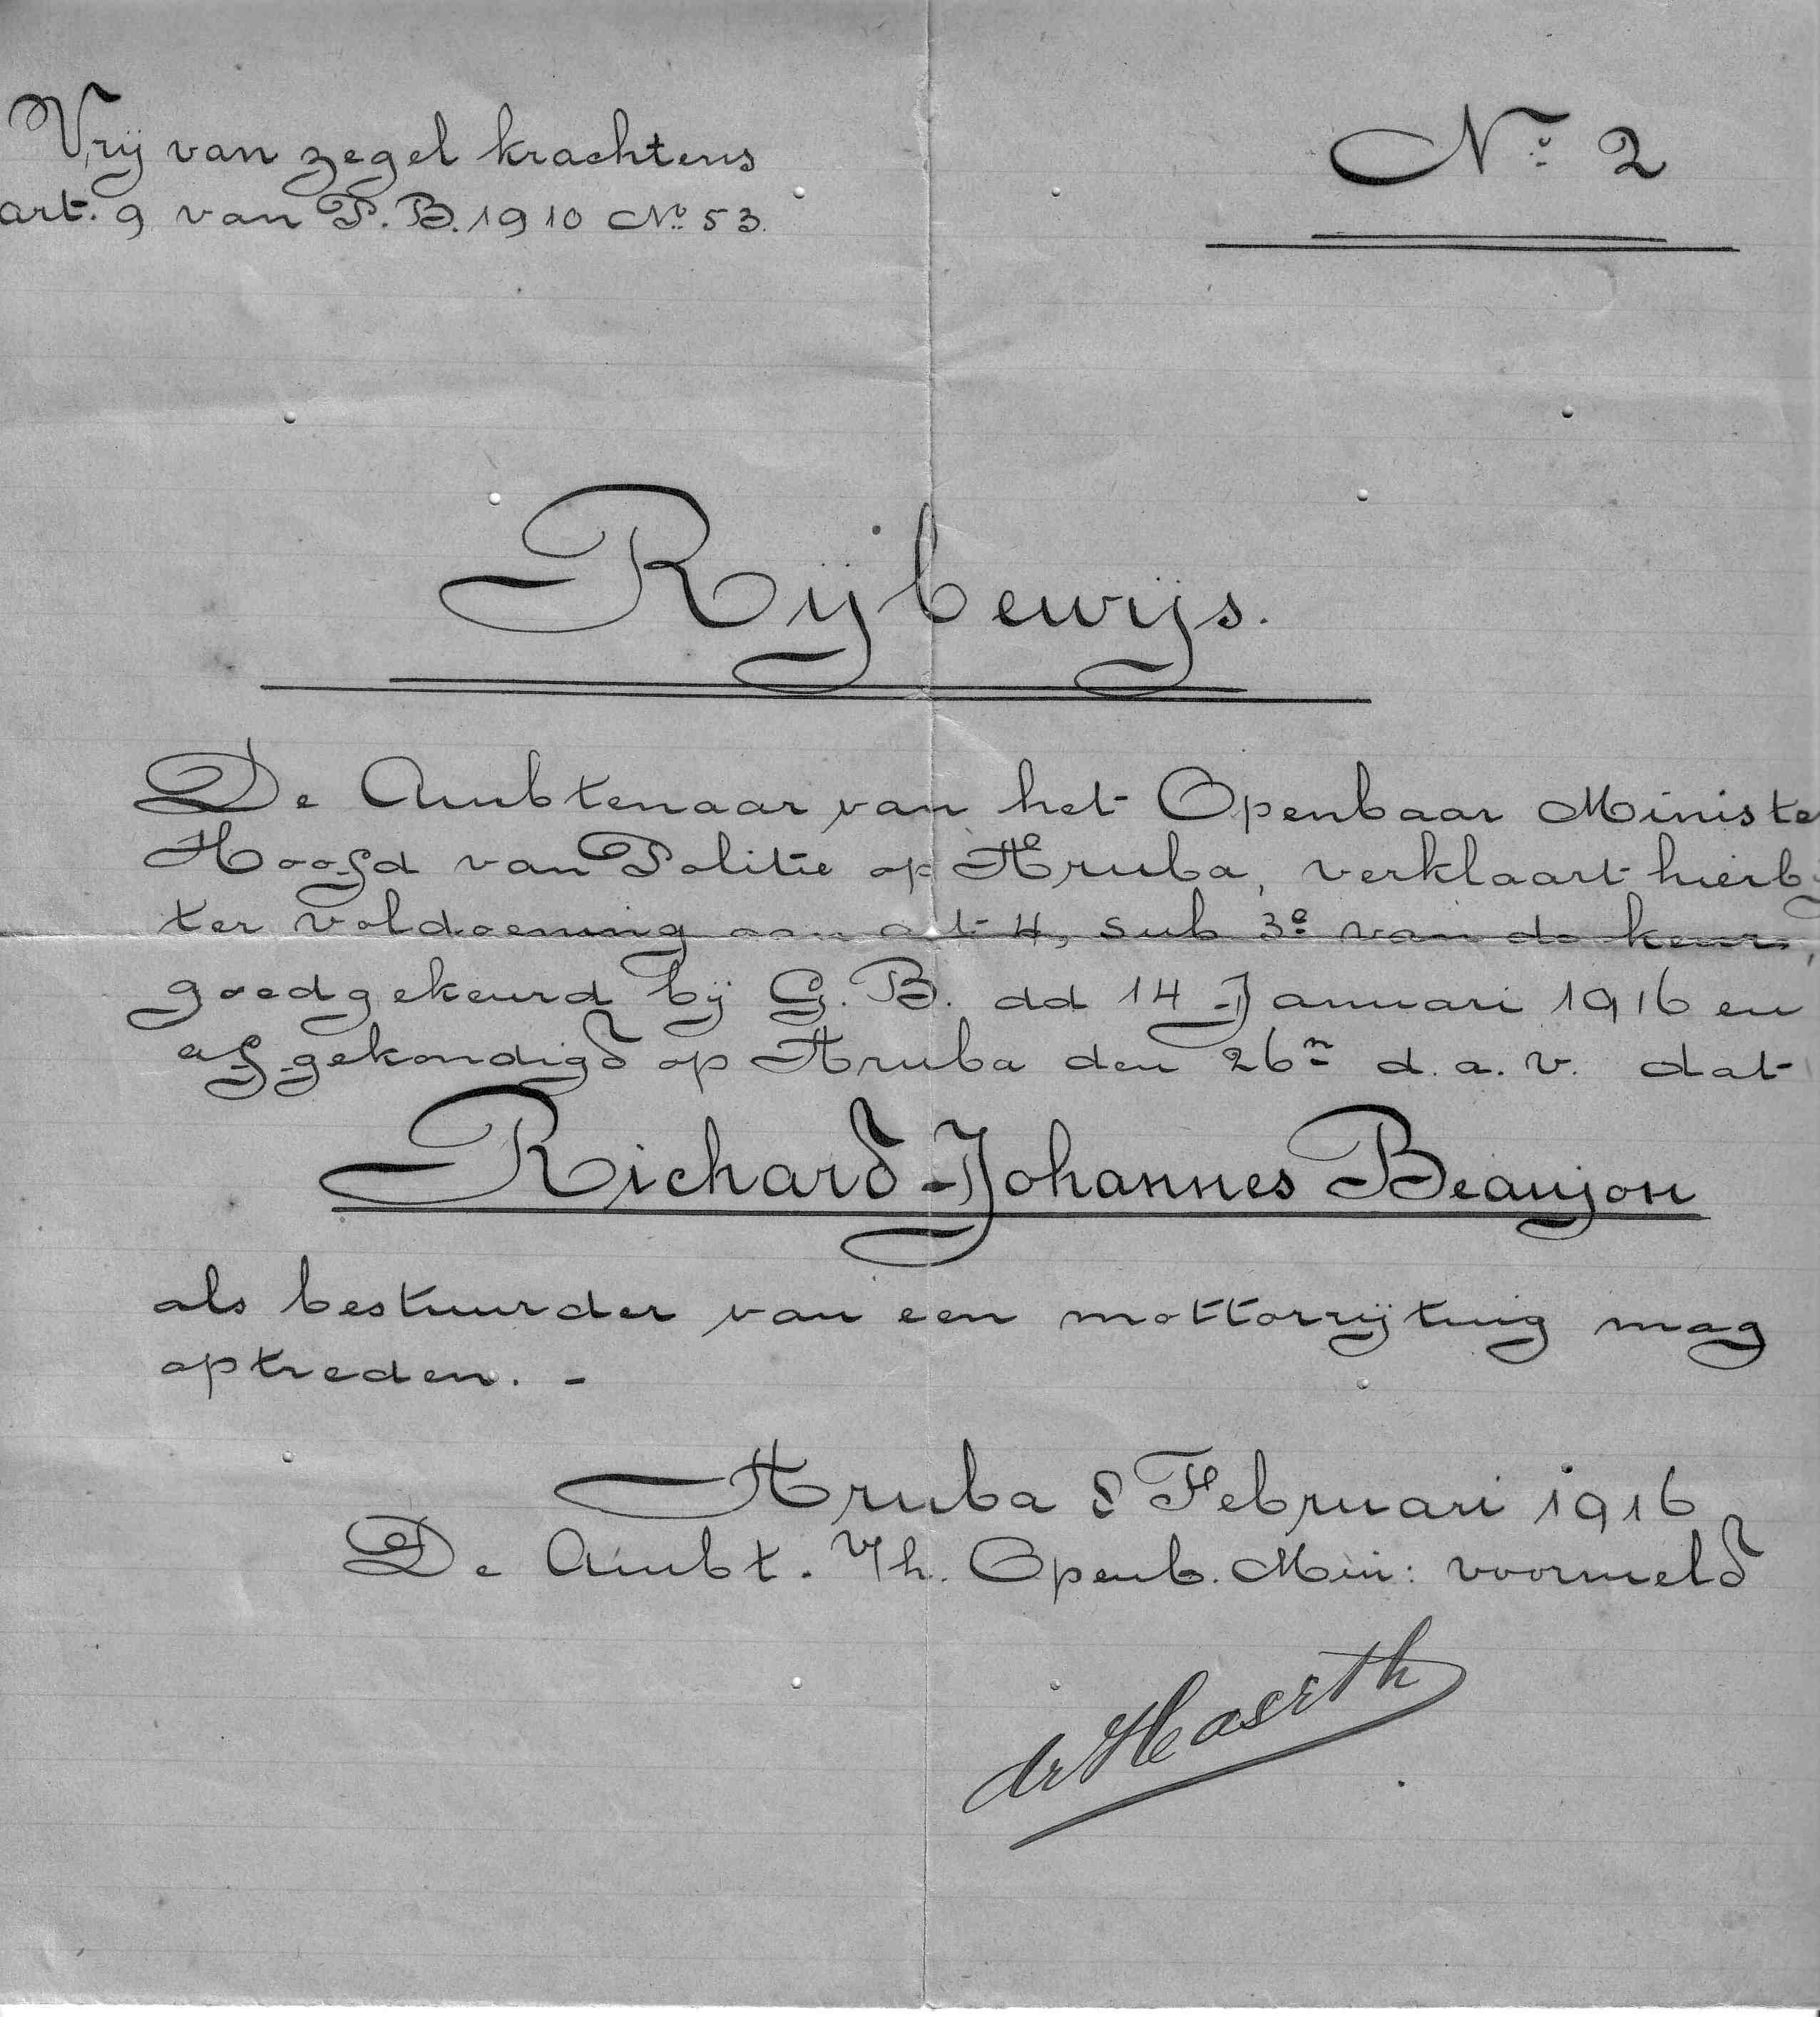 Vrij van zegel krachtens
art. 9 van P.B. 1910 No. 53.
No. 2
Rijbewijs.
De Ambtenaar van het Openbaar Ministe
Hoofd van Politie op Aruba, verklaart hierb
ter voldoening aan art 4, sub 3e van de keur,
goedgekeurd bij G.B. dd 14 Januari 1916 en
afgekondigd op Aruba den 26n d.a.v. dat
Richard Johannes Beaujon
als bestuurder van een mottorrijtuig mag
optreden. -
Aruba 8 Februari 1916
De Ambt. v/h. Openb. Min: voormeld